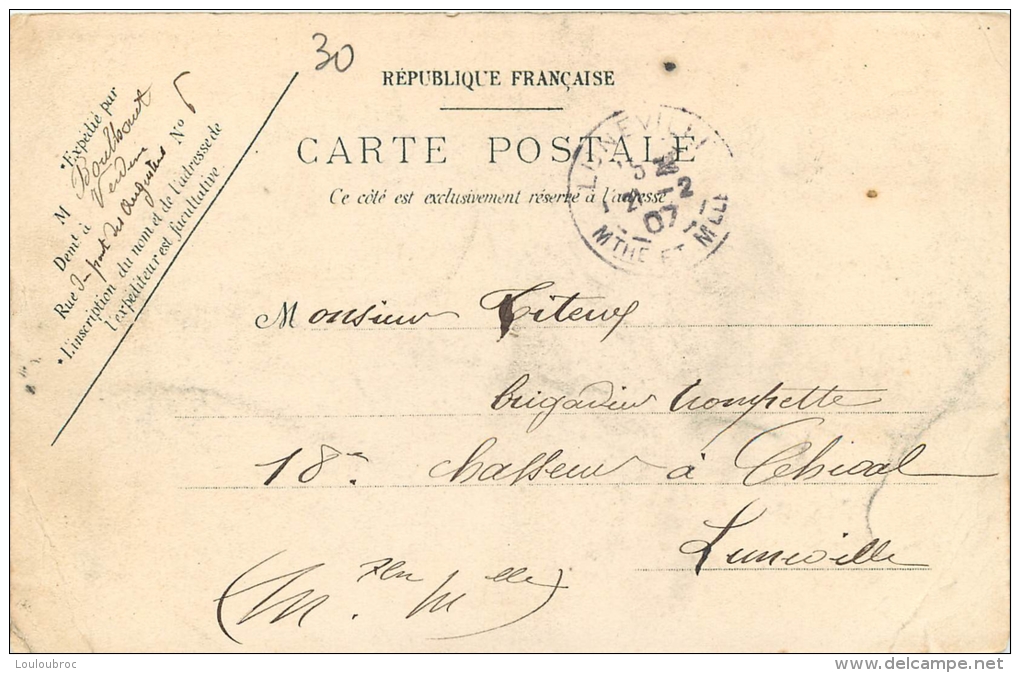 30
RÉPUBLIQUE FRANÇAISE
CARTE POSTALE
Ce côté est exclusivement réservé à l'adresse
*Expédié par
M Boulhaut
Demt à Verdun
Rue du pont des Augustins No 6
*L'inscription du nom et de l'adresse de
l'expéditeur est facultative
LUNEVILLE
2 - 2
07
MTHE ET MLLE
Monsieur Titeux
brigadier trompette
18e chasseur à Cheval
Luneville
(Mthe Melle)
Louloubroc
http://www.delcampe.net